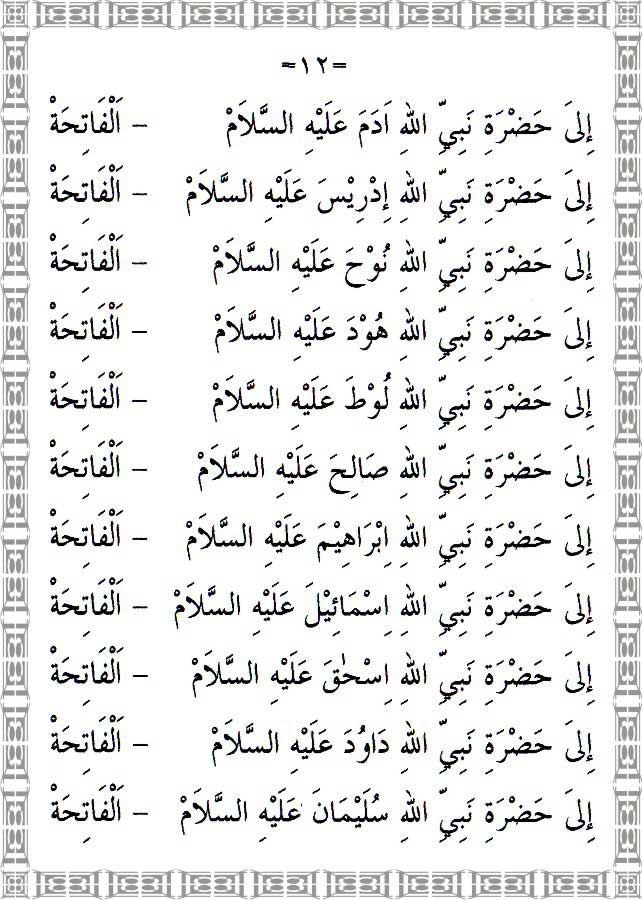 =١٢=
إِلىَ حَضْرَةِ نَبِيِّ اللهِ اَدَمَ عَلَيْهِ السَّلَامْ – اَلْفَاتِحَةْ
إِلىَ حَضْرَةِ نَبِيِّ اللهِ إِدْرِيْسَ عَلَيْهِ السَّلَامْ – اَلْفَاتِحَةْ
إِلىَ حَضْرَةِ نَبِيِّ اللهِ نُوْحَ عَلَيْهِ السَّلَامْ – اَلْفَاتِحَةْ
إِلىَ حَضْرَةِ نَبِيِّ اللهِ هُوْدَ عَلَيْهِ السَّلَامْ – اَلْفَاتِحَةْ
إِلىَ حَضْرَةِ نَبِيِّ اللهِ لُوْطَ عَلَيْهِ السَّلَامْ – اَلْفَاتِحَةْ
إِلىَ حَضْرَةِ نَبِيِّ اللهِ صَالِحَ عَلَيْهِ السَّلَامْ – اَلْفَاتِحَةْ
إِلىَ حَضْرَةِ نَبِيِّ اللهِ اِبْرَاهِيْمَ عَلَيْهِ السَّلَامْ – اَلْفَاتِحَةْ
إِلىَ حَضْرَةِ نَبِيِّ اللهِ اِسْمَائِيْلَ عَلَيْهِ السَّلَامْ – اَلْفَاتِحَةْ
إِلىَ حَضْرَةِ نَبِيِّ اللهِ اِسْحٰقَ عَلَيْهِ السَّلَامْ – اَلْفَاتِحَةْ
إِلىَ حَضْرَةِ نَبِيِّ اللهِ دَاوُدَ عَلَيْهِ السَّلَامْ – اَلْفَاتِحَةْ
إِلىَ حَضْرَةِ نَبِيِّ اللهِ سُلَيْمَانَ عَلَيْهِ السَّلَامْ – اَلْفَاتِحَةْ